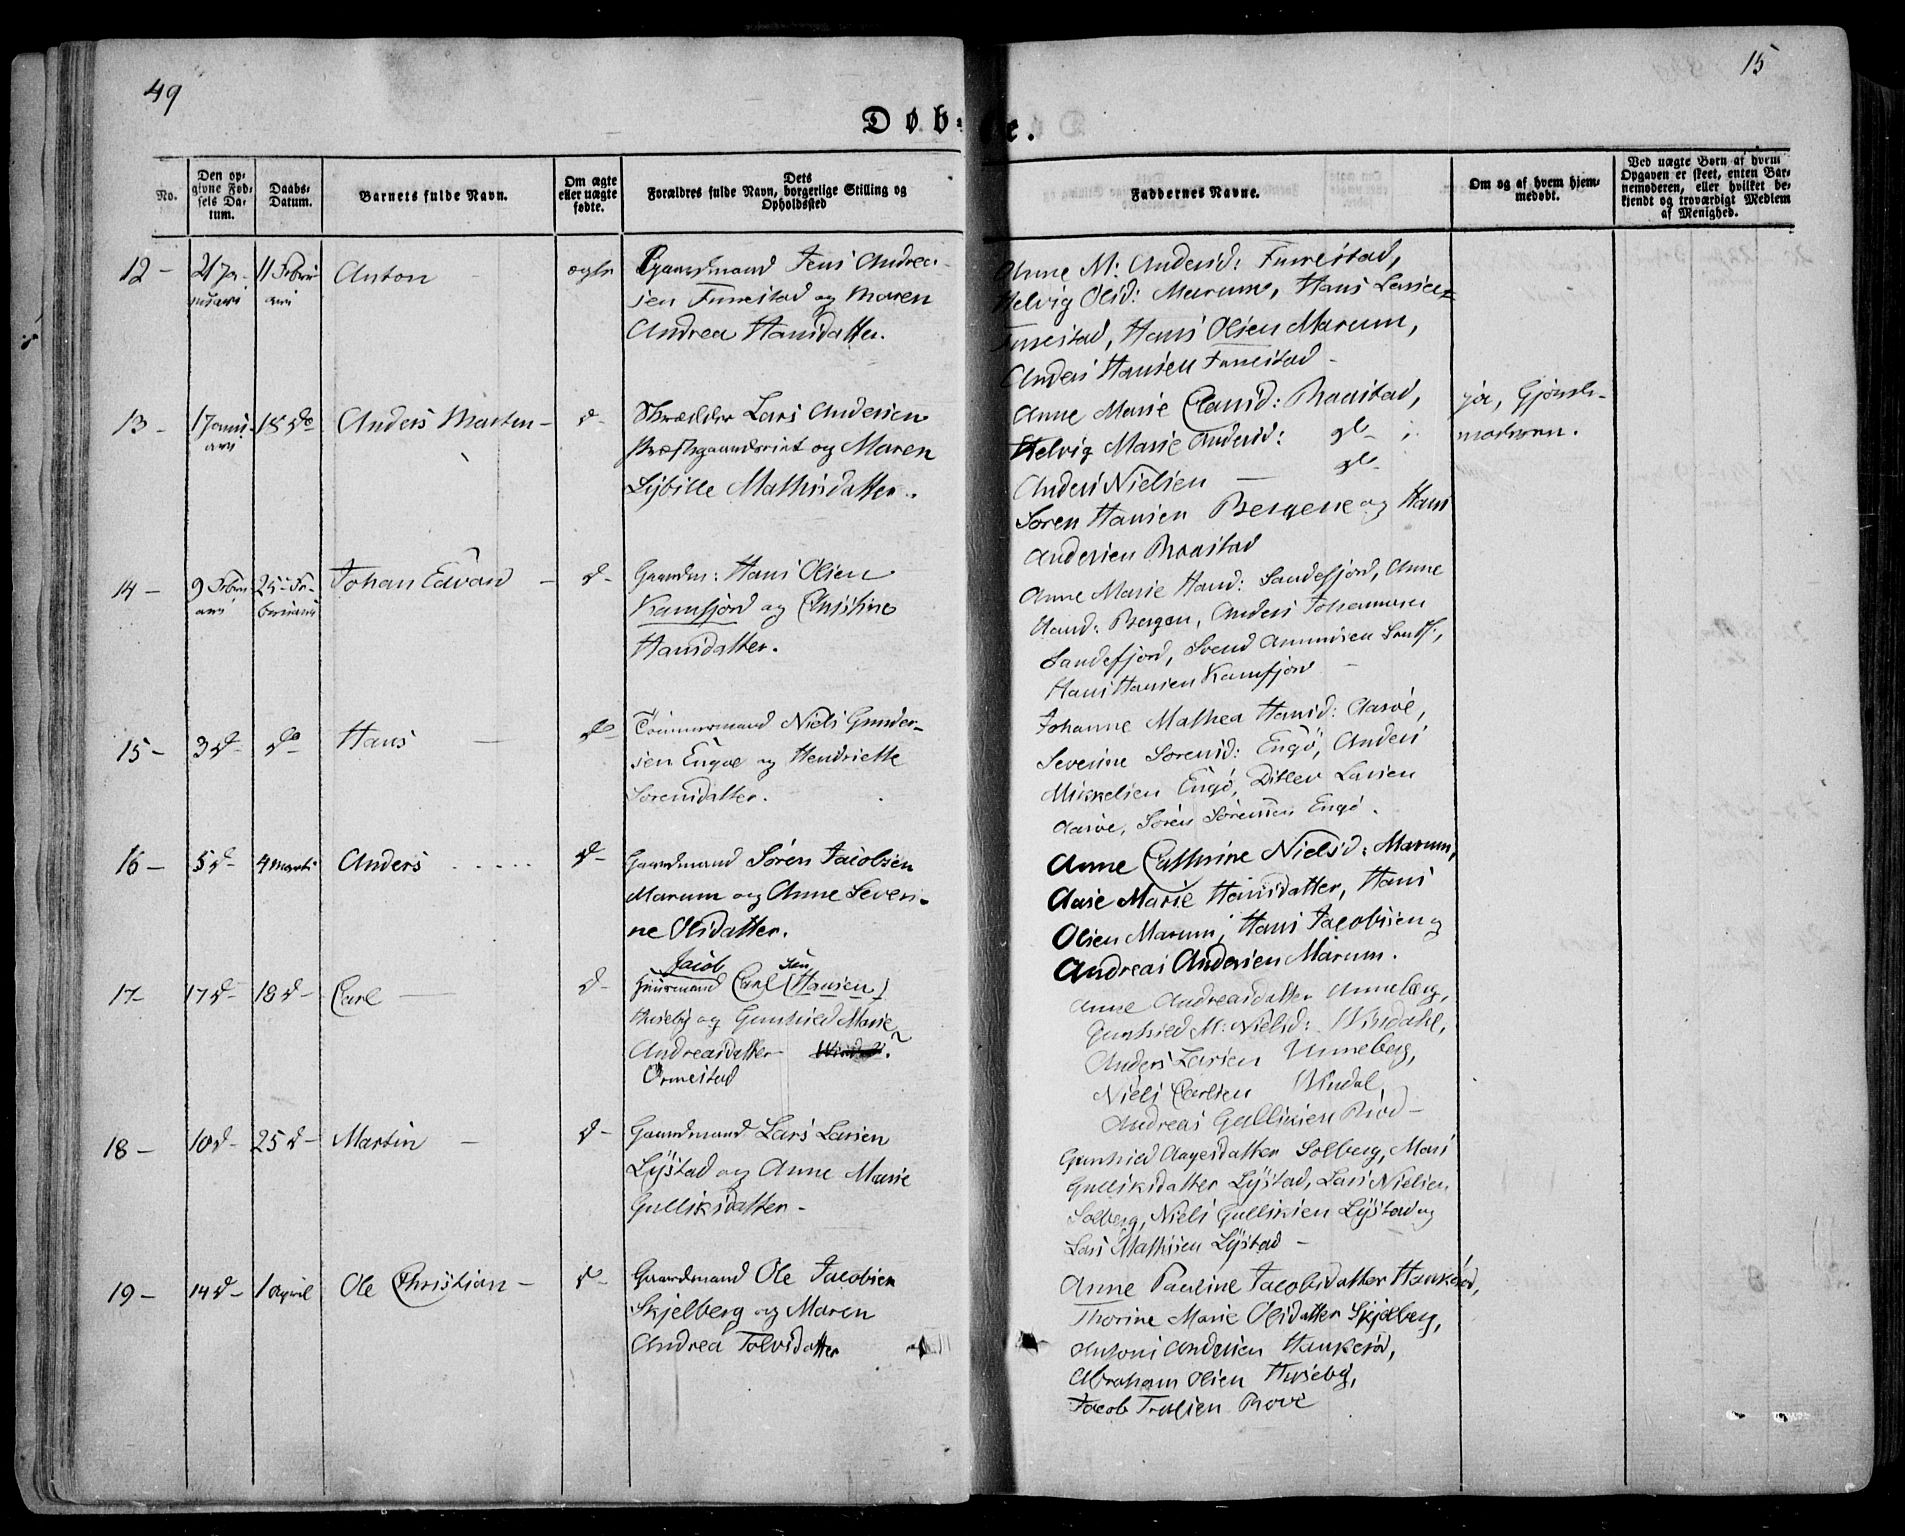 49
15
Døbte.
No.
Den op-
givne Fød-
sels Da-
tum.
Daabs-
Datum.
Barnets fulde Navn.
Om ægte
eller uægte
fødte.
Dets
Forældres fulde Navn, borgerlige Stilling og
Opholdssted
Faddernes Navne.
Om og af hvem hjem-
medøbt.
Ved uægte Børn af hvem
Opgaven er skeet, enten Bar-
nemoderen, eller hvilket be-
kjendt og troværdigt Medlem
af Menighed.
12 - 21 Ja-
nuari
11 Febru-
ari
Anton
ægte
Gaardmand Jens Andrea-
sen Furrestad og Maren
Andrea Hansdatter.
Anne M: Andersd: Furrestad,
Helvig Olsd: Marum, Hans Larsen
Furrestad, Hans Olsen Marum,
Anders Hansen Furrestad -
13 - 1 Janu-
ari
18 do
Anders Marten -
d-
Skrædder Lars Andersen
og Maren
Sybille Mathisdatter.
Anne Marie Clausd: Raastad,
Helvig Marie Andersd:
Anders Nielsen
Søren Hansen Bergene og Hans
Andersen Raastad
ja, Gjords-
moderen.
14 - 9 Febru-
ari
25 Fe-
bruari
Johan Edvard -
d-
Gaardm: Hans Olsen
Kamfjord og Christine
Hansdatter.
Anne Marie Hansd: Sandefjord, Anne
Hansd: Bergan, Anders Johannesen
Sandefjord, Svend Amundsen Sandf:,
Hans Hansen Kamfjord -
15 - 3 d- do
Hans
do
Tømmermand Niels Gunder-
sen Engøe og Hendriette
Sørensdatter.
Johanne Mathea Hansd: Aasøe,
Severine Sørensd: Engø, Anders
Mikkelsen Engø, Ditlev Larsen
Aasøe, Søren Sørensen Engø.
16 - 5 d- 4 Marti
Anders
d-
Gaardmand Søren Jacobsen
Marum og Anne Severi-
ne Olsdatter.
Anne Cathrine Nielsd: Marum,
Aase Marie Hansdatter, Hans
Olsen Marum, Hans Jacobsen og
Andreas Andersen Marum.
17- 17 d- 18 d-
Carl
d-
Jacob sen
Huusmand Carl (Hansen)
Huseby og Gunhild Marie
Andreasdatter ?
Ormestad
Anne Andreasdatter Unneberg,
Gunhild M: Nielsd: Vindahl,
Anders Larsen Unneberg,
Niels Carlsen Vindal,
Andreas Gulliksen Riød -
18 - 10 d- 25 d-
Martin
d-
Gaardmand Lars Larsen
Lystad og Anne Marie
Gulliksdatter -
Gunhild Aagesdatter Solberg, Mari
Gulliksdatter Lystad, Lars Nielsen
Solberg, Niels Gulliksen Lystad og
Lars Mathisen Lystad -
19 - 14 d- 1 April
Ole Christian -
d-
Gaardmand Ole Jacobsen
Skjelberg og Maren
Andrea Tolvsdatter
Anne Pauline Jacobsdatter Haukerød,
Thorine Marie Olsdatter Skjelberg,
Antoni Andersen Haukerød,
Abraham Olsen Huseby,
Jacob Trulsen Rove